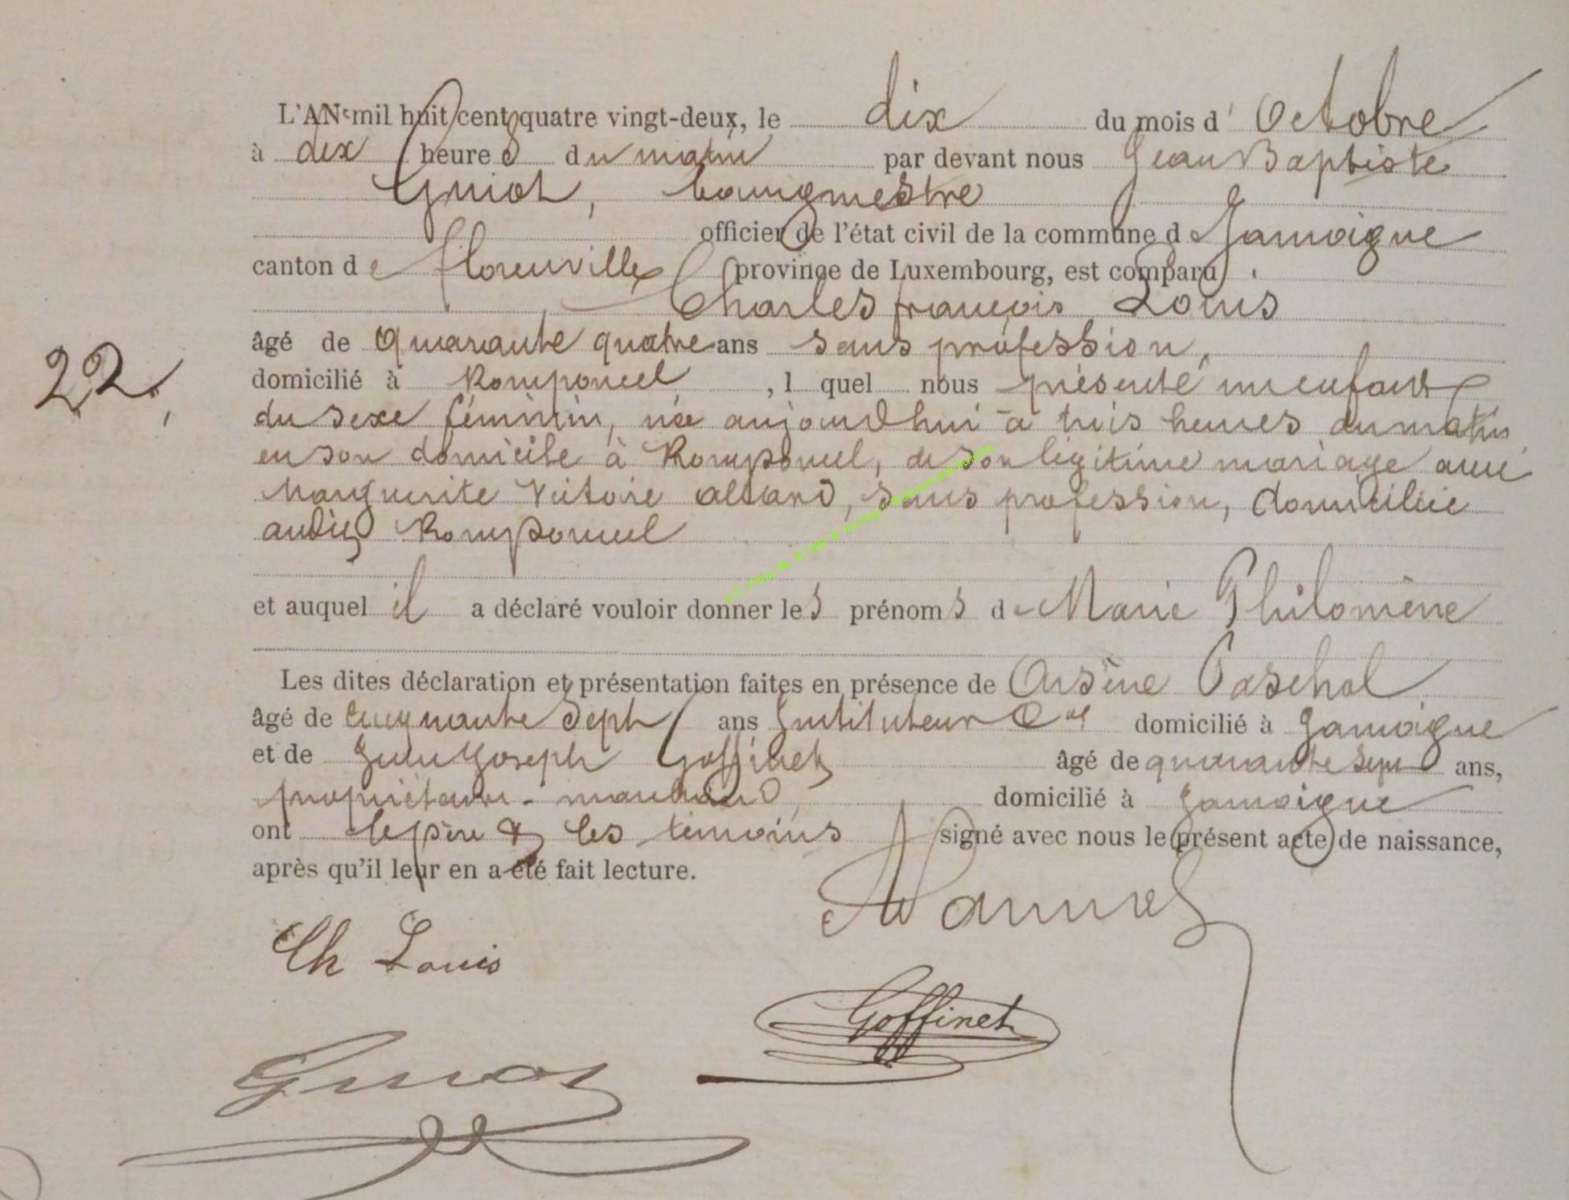 L'AN mil huit cent quatre vingt-deux, le dix du mois d' Octobre
à dix heures du matin par devant nous Jean Baptiste
Guiot, bourgmestre
officier de l'état civil de la commune de Jamoigne
canton de florenville province de Luxembourg, est comparu
Charles françois Louis
âgé de quarante quatre ans sans profession,
22,
domicilié à Romponcel , l quel nous présente un enfant
du sexe féminin, née aujourdhui à trois heures du matin
en son domicile à Romponcel, de son légitime mariage avec
Marguerite Victoire allard, sans profession, domiciliée
audit Romponcel
et auquel il a déclaré vouloir donner les prénoms de Marie Philomène
Les dites déclaration et présentation faites en présence de Arsène Paschal
âgé de cinquante sept ans Instituteur domicilié à Jamoigne
et de Jules Joseph Goffinet âgé de quarante sept ans,
propriétaire - marchand, domicilié à Jamoigne
ont le père & les témoins signé avec nous le présent acte de naissance,
après qu'il leur en a été fait lecture.
Ch Louis
Goffinet
Guiot